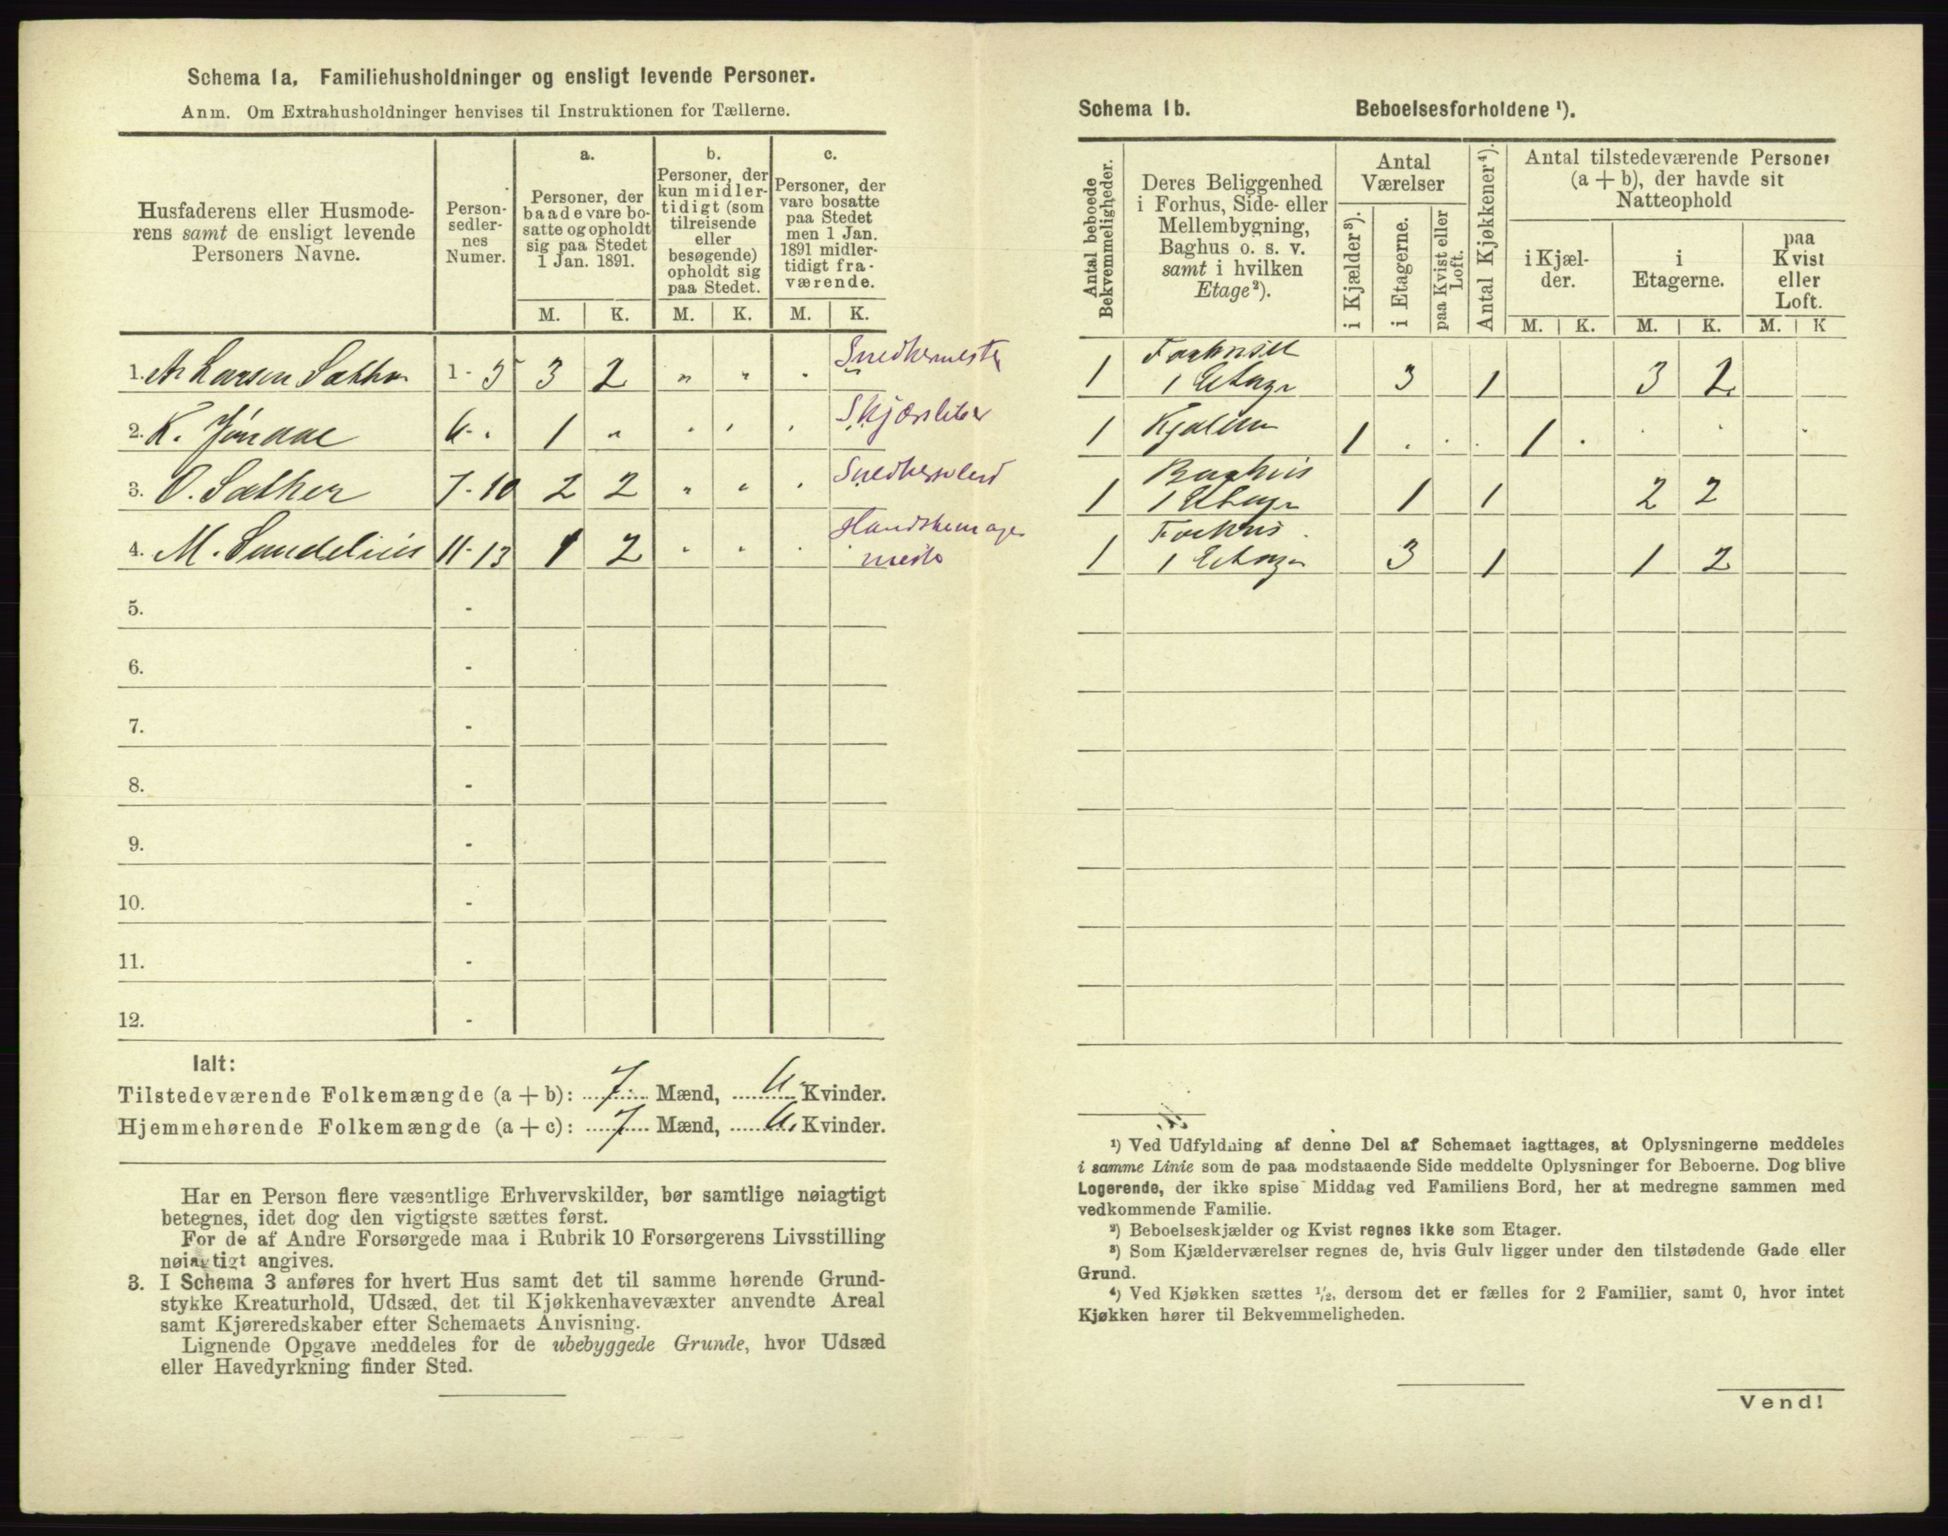 Schema 1a. Familiehusholdninger og ensligt levende Personer.
Anm. Om Extrahusholdninger henvises til Instruktionen for Tællerne.
Husfaderens eller Husmode-
rens samt de ensligt levende
Personers Navne.
Person-
sedler-
nes
Numer.
a.
Personer, der
baade vare bo-
satte og opholdt
sig paa Stedet
1 Jan. 1891.
b.
Personer, der
kun midler-
tidigt (som
tilreisende
eller
besøgende)
opholdt sig
paa Stedet.
c.
Personer, der
vare bosatte
paa Stedet
men 1 Jan.
1891 midler-
tidigt fra-
værende.
M. K. M. K. M. K.
1. A. Larsen Sæther 1-5 3 2 " " . Snedkermester
2. K. Jøndal 6-. 1 " . . . Skjærsliber
3. O. Sæther 7-10 2 2 " " . Snedkersvend
4. M. Sundelius 11-13 1 2 . . . Handskemager
mester
5. -
6. -
7. -
8. -
9. -
10. -
11. -
12. -
Ialt:
Tilstedeværende Folkemængde (a + b): 7 Mænd, 6 Kvinder.
Hjemmehørende Folkemængde (a + c): 7 Mænd, 6 Kvinder.
Har en Person flere væsentlige Erhvervskilder, bør samtlige nøiagtigt
betegnes, idet dog den vigtigste sættes først.
For de af Andre Forsørgede maa i Rubrik 10 Forsørgerens Livsstilling
nøiagtigt angives.
3. I Schema 3 anføres for hvert Hus samt det til samme hørende Grund-
stykke Kreaturhold, Udsæd, det til Kjøkkenhavevæxter anvendte Areal
samt Kjøreredskaber efter Schemaets Anvisning.
Lignende Opgave meddeles for de ubebyggede Grunde, hvor Udsæd
eller Havedyrkning finder Sted.
Schema 1b. Beboelsesforholdene ¹).
Antal beboede
Bekvemmeligheder.
Deres Beliggenhed
i Forhus, Side- eller
Mellembygning,
Baghus o. s. v.
samt i hvilken
Etage²).
Antal
Værelser
i Kjælder³).
i Etagerne.
paa Kvist eller
Loft.
Antal Kjøkkener⁴).
Antal tilstedeværende Personer
(a + b), der havde sit
Natteophold
i Kjæl-
der.
i
Etagerne.
paa
Kvist
eller
Loft.
M. K. M. K. M. K
1 Forhuset
1 Etage 3 1 3 2
1 Kjælder 1 . . . 1 . . . .
1 Baghus
1 Etage 1 1 2 2
1 Forhus
1 Etage 3 1 1 2
¹) Ved Udfyldning af denne Del af Schemaet iagttages, at Oplysningerne meddeles
i samme Linie som de paa modstaaende Side meddelte Oplysninger for Beboerne. Dog blive
Logerende, der ikke spise Middag ved Familiens Bord, her at medregne sammen med
vedkommende Familie.
²) Beboelseskjælder og Kvist regnes ikke som Etager.
³) Som Kjælderværelser regnes de, hvis Gulv ligger under den tilstødende Gade eller
Grund.
⁴) Ved Kjøkken sættes ½, dersom det er fælles for 2 Familier, samt 0, hvor intet
Kjøkken hører til Bekvemmeligheden.
Vend!